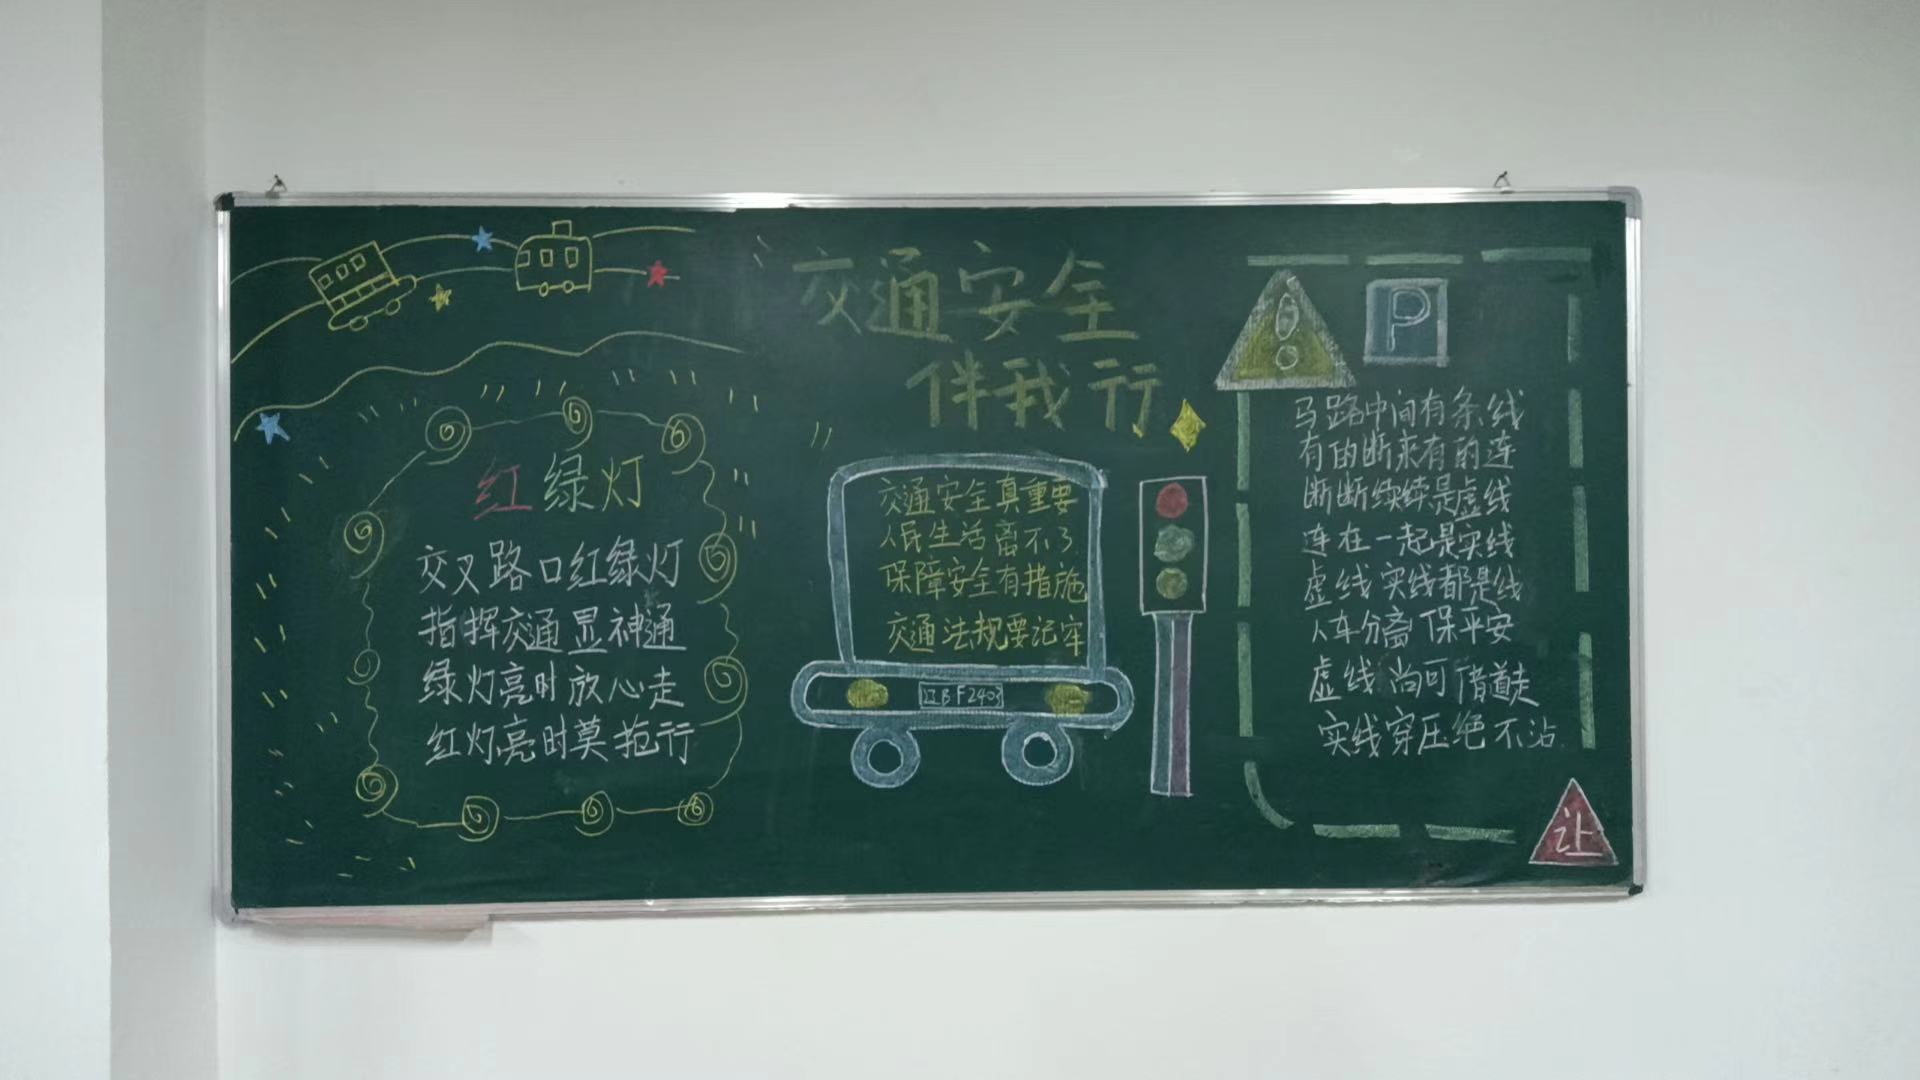 交通安全
伴我行
红绿灯
交叉路口红绿灯
指挥交通显神通
绿灯亮时放心走
红灯亮时莫抢行
交通安全真重要
人民生活离不了
保障安全有措施
交通法规要记牢
辽B F2403
P
马路中间有条线
有的断来有的连
断断续续是虚线
连在一起是实线
虚线实线都是线
人车分离保平安
虚线尚可借道走
实线穿压绝不沾
让